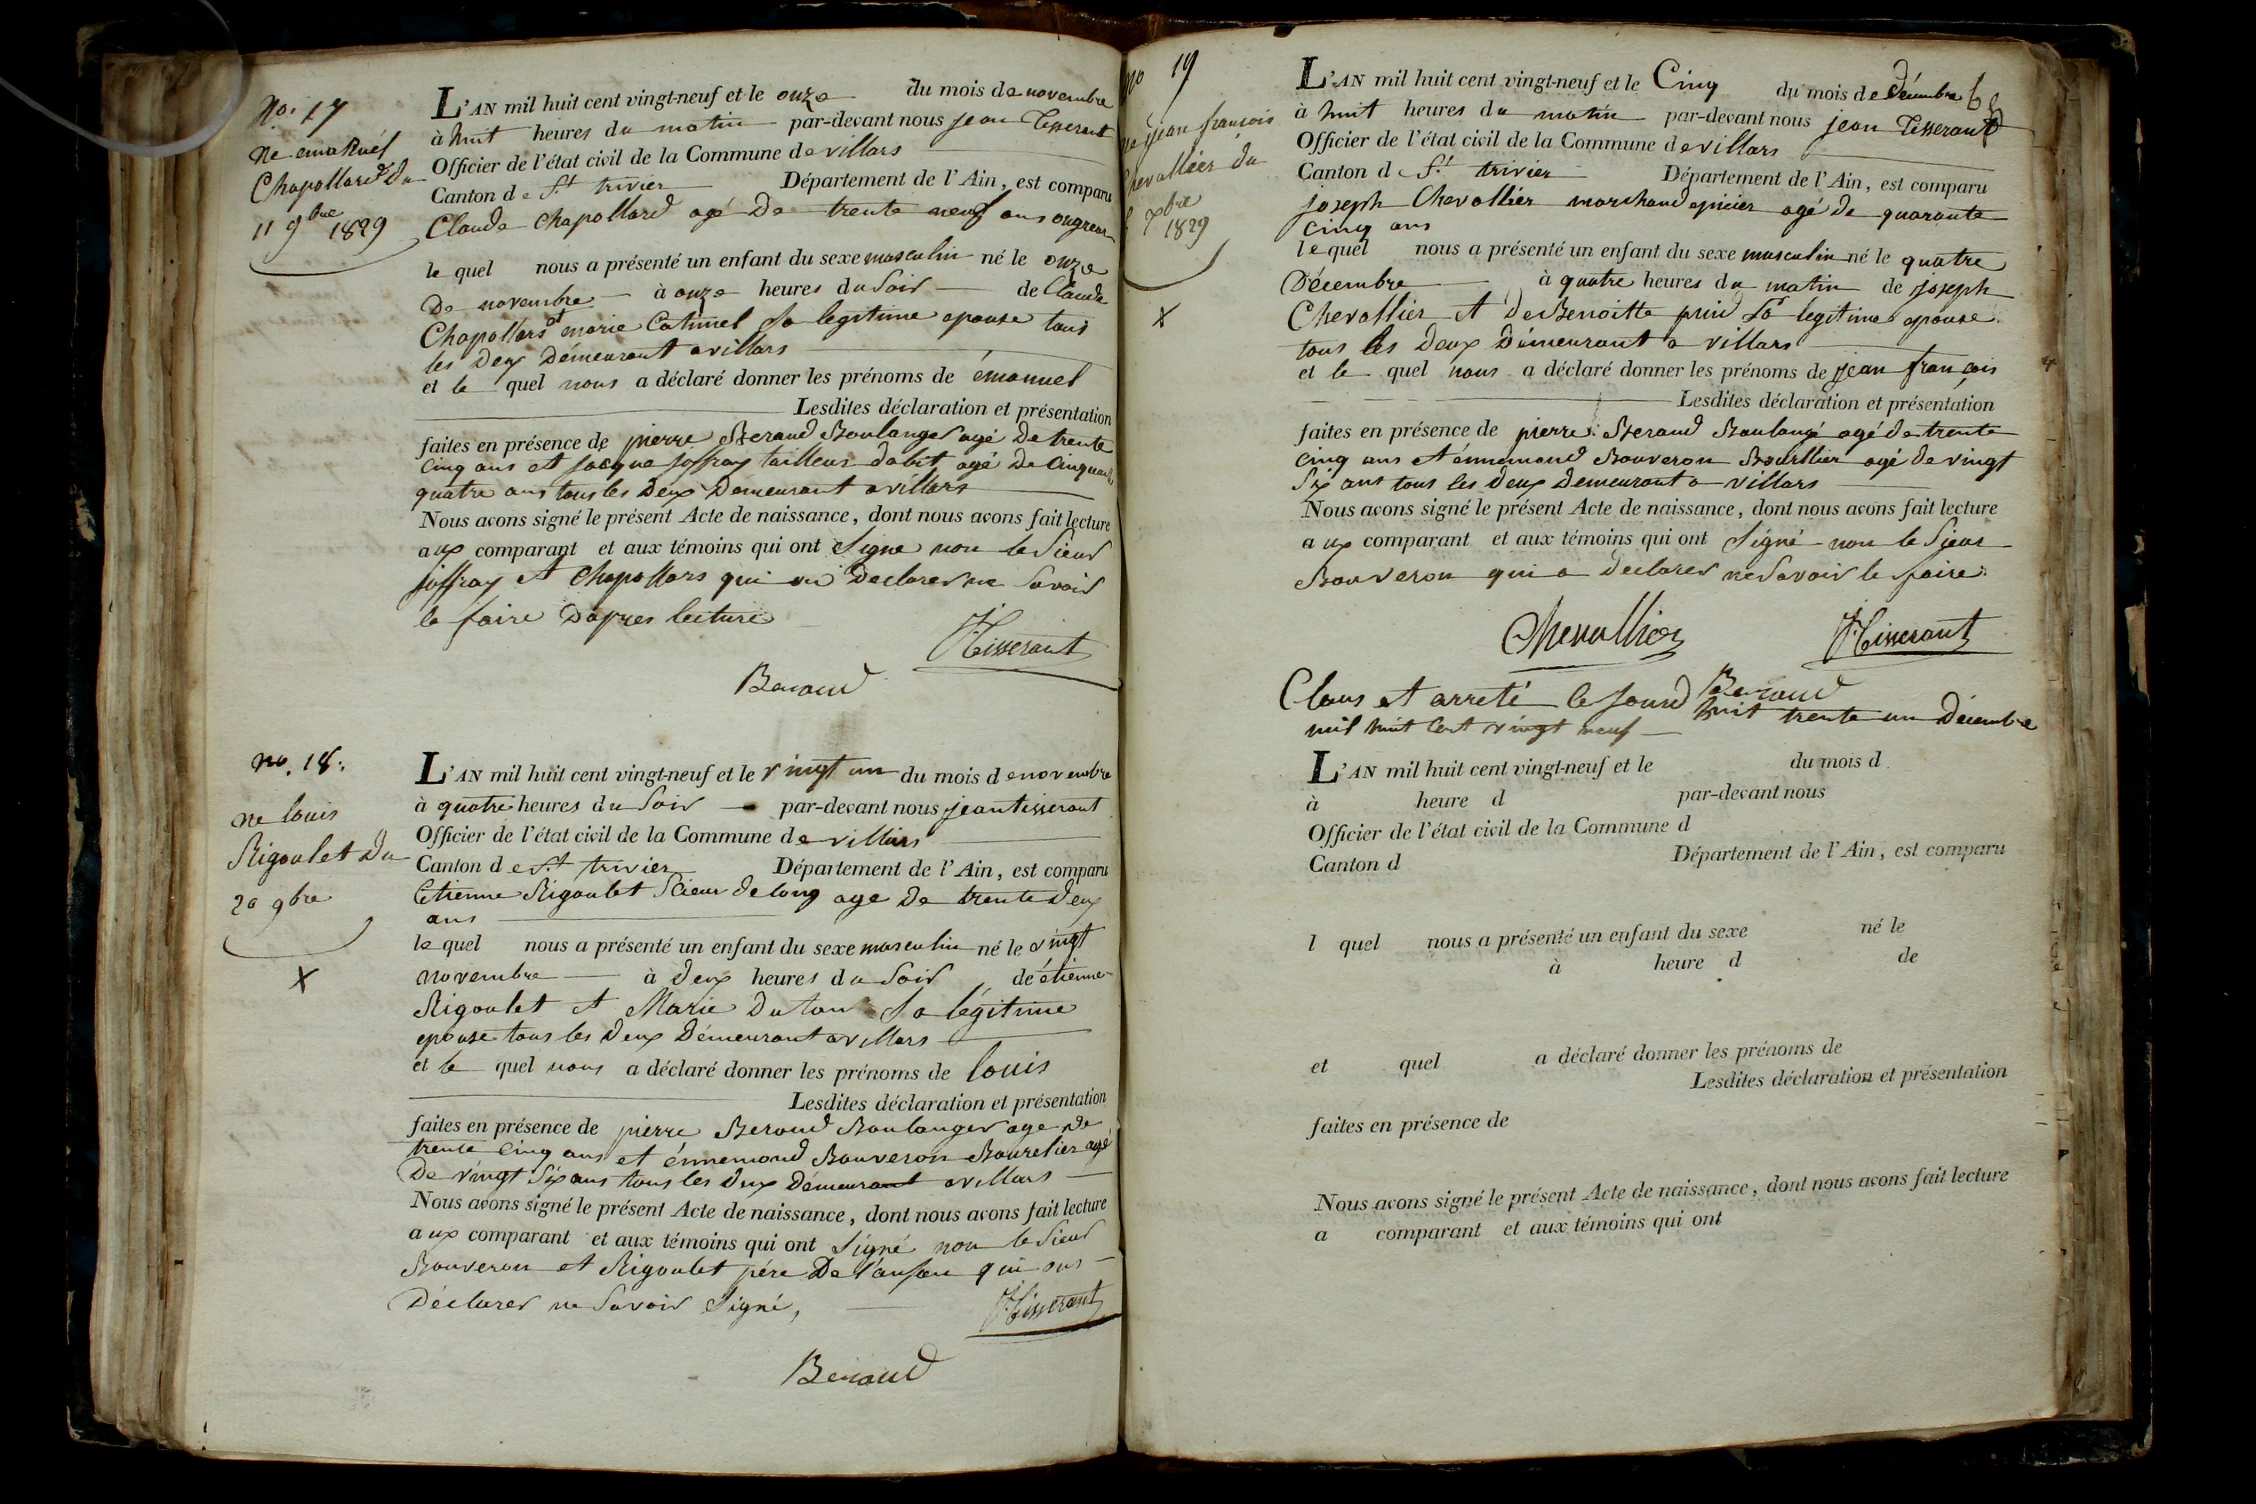 No. 17
Ne emanuel
Chapollard du
11 9bre 1829
L'AN mil huit cent vingt-neuf et le onze du mois de novembre
à huit heures du matin par-devant nous jean Tisserant
Officier de l'état civil de la Commune de villars
Canton de St trivier Département de l'Ain, est comparu
Claude Chapollard agé De trente neuf ans
le quel nous a présenté un enfant du sexe masculin né le onze
De novembre à onze heures du Soir de Claude
Chapollard et marie Catimel Sa legitime epouse tous
les Deux Démeurant a villars
et le quel nous a déclaré donner les prénoms de émanuel
Lesdites déclaration et présentation
faites en présence de pierre Beraud Boulanger agé De trente
cinq ans et jacque joffray tailleur dabit agé De Cinquante
quatre ans tous les Deux Demeurant a villars
Nous avons signé le présent Acte de naissance, dont nous avons fait lecture
aux comparant et aux témoins qui ont Signe non le Sieur
joffray et Chapollard qui on Declarer ne Savoir
le faire Dapres lecture
JTisserant
Beraud
no. 18.
ne louis
Rigoulet Du
20 9bre
X
L'AN mil huit cent vingt-neuf et le vingt un du mois de novembre
à quatre heures du Soir par-devant nous jean tisserant
Officier de l'état civil de la Commune de villars
Canton de St trivier Département de l'Ain, est comparu
Etienne Rigoulet Scieur de long age De trente Deux
ans
le quel nous a présenté un enfant du sexe masculin né le vingt
novembre à deux heures du Soir de étienne
Rigoulet et Marie Dutour Sa légitime
epouse tous les Deux Démeurant a villars
et le quel nous a déclaré donner les prénoms de louis
Lesdites déclaration et présentation
faites en présence de pierre Beraud Boulanger age De
trente Cinq ans et énnemond Bouveron Bourelier agé
De vingt Six ans tous les Deux Démeurant a villars
Nous avons signé le présent Acte de naissance, dont nous avons fait lecture
aux comparant et aux témoins qui ont Signé non le Sieur
Bouveron et Rigoulet pére De l'anfan qui ons
Déclarer ne Savoir Signé,
JTisserant
Beraud
no 19
ne jean francois
Chevallier du
xbre
1829
X
L'AN mil huit cent vingt-neuf et le Cinq du mois de Décembre
à huit heures du matin par-devant nous jean Tisserant
Officier de l'état civil de la Commune de villars
Canton de St trivier Département de l'Ain, est comparu
joseph Chevallier marchand epicier agé de quarante
cinq ans
le quel nous a présenté un enfant du sexe masculin né le quatre
Décembre à quatre heures du matin de joseph
Chevallier et De Benoitte Sa légitime epouse
tous les Deux Démeurant a villars
et le quel nous a déclaré donner les prénoms de jean françois
Lesdites déclaration et présentation
faites en présence de pierre Beraud Boulangé agé de trente
cinq ans et énnemond Bouveron Bourllier agé de vingt
Six ans tous les Deux Demeurant a villars
Nous avons signé le présent Acte de naissance, dont nous avons fait lecture
aux comparant et aux témoins qui ont Signé non le Sieur
Bouveron qui a declarer ne Savoir le faire
Chevallier
JTisserant
Beraud
Clous et arreté le jourd huit trente un Décembre
mil huit Cent vingt neuf
L'AN mil huit cent vingt-neuf et le du mois d
à heure d par-devant nous
Officier de l'état civil de la Commune d
Canton d Département de l'Ain, est comparu
l quel nous a présenté un enfant du sexe né le
à heure d de
et quel a déclaré donner les prénoms de
Lesdites déclaration et présentation
faites en présence de
Nous avons signé le présent Acte de naissance, dont nous avons fait lecture
a comparant et aux témoins qui ont